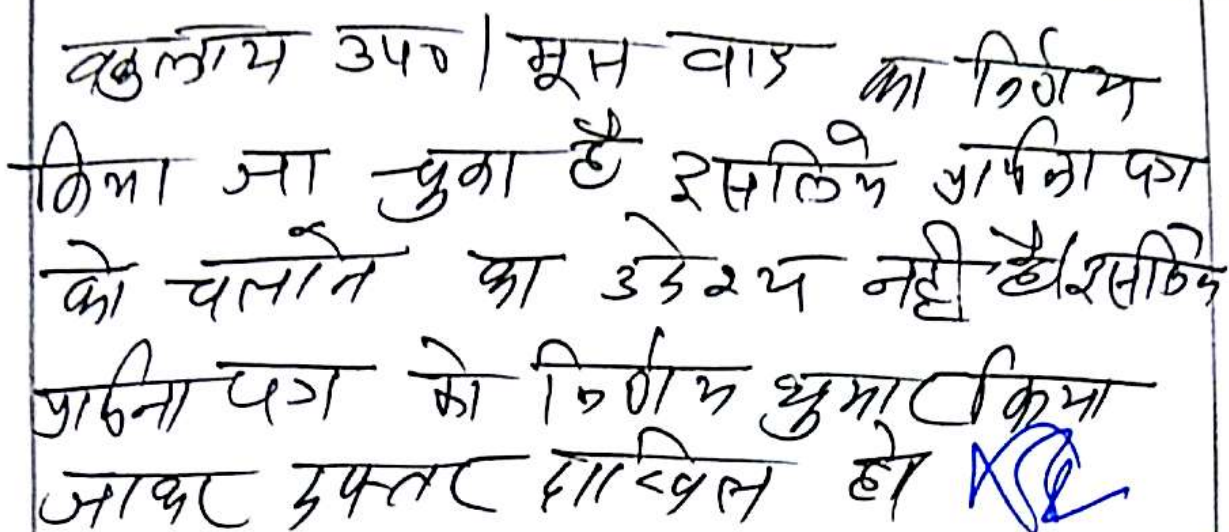 वकुलाय उप० | मूल वाद का निर्णय
किया जा चुका है इसलिये प्रार्थना पत्र
को चलाने का उदेश्य नही है। इसलिये
प्रार्थना पत्र को निर्णय शुमार किया
जाकर दफ्तर दाखिल हो